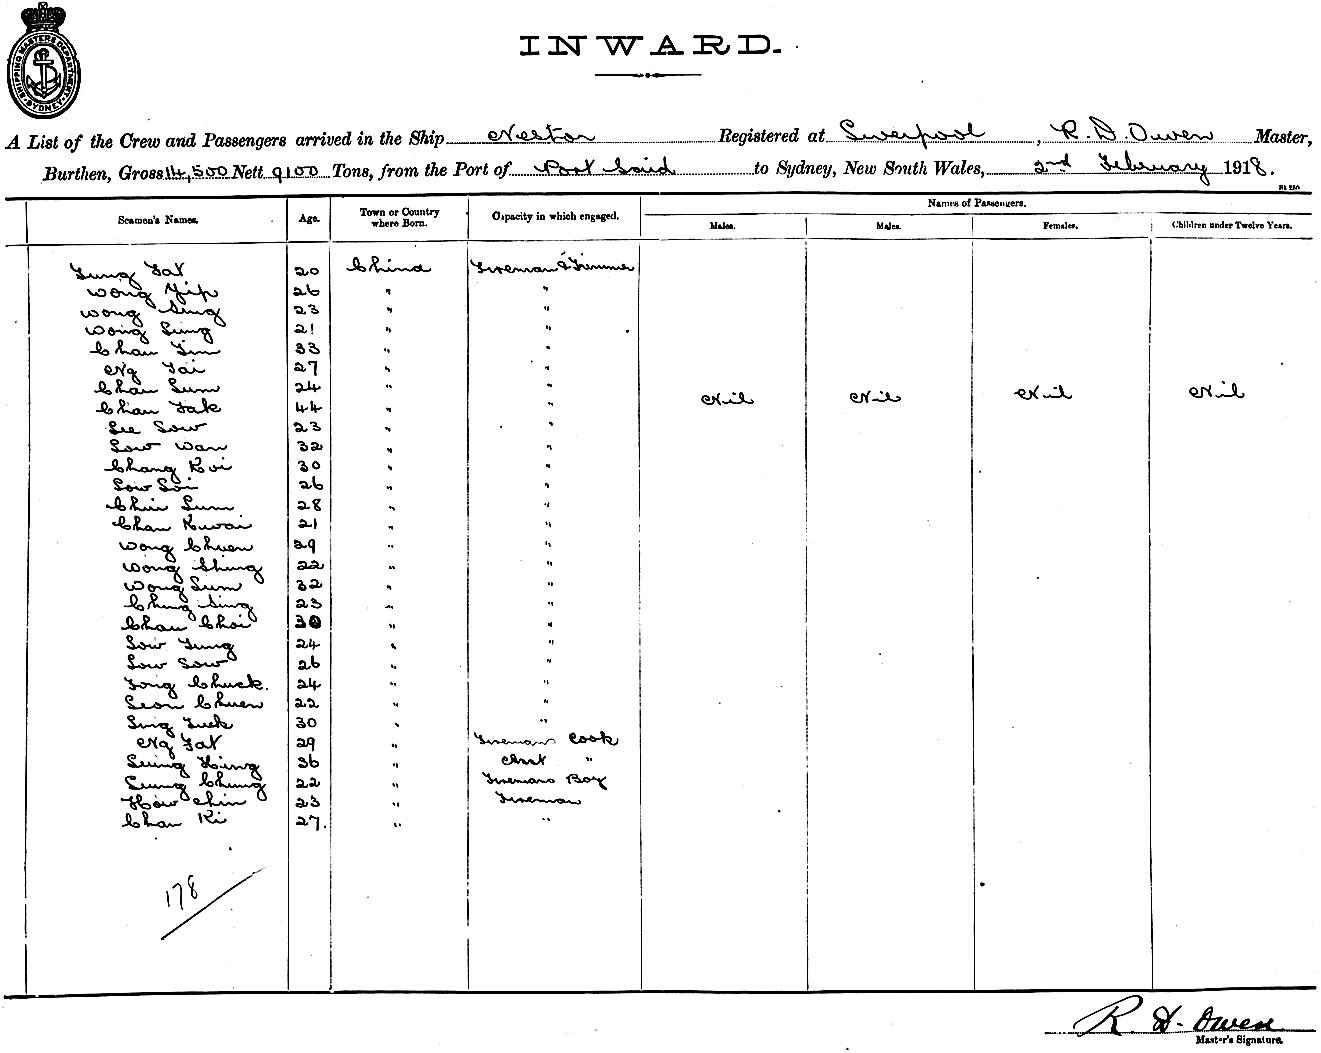 SHIPPING MASTERS DEPARTMENT SYDNEY
INWARD.
A List of the Crew and Passengers arrived in the Ship Nestor Registered at Liverpool, R. D. Owen Master,
Burthen, Gross 14,500 Nett 9100 Tons, from the Port of Port Said to Sydney, New South Wales, 2nd February 1918.
Seamen's Names. Age. Town or Country where Born. Capacity in which engaged. Names of Passengers.
Males. Males. Females. Children under Twelve Years.
Fung Fat 20 China Fireman & Trimmer
Wong Yip 26 " "
Wong Sing 23 " "
Wong Sing 21 " "
Chan Yim 33 " "
Ng Tai 27 " "
Chan Sum 24 " "
Chan Tak 44 " " Nil Nil Nil Nil
Lee Sow 23 " "
Low Wan 32 " "
Chang Koi 30 " "
Low Loi 26 " "
Chin Sum 28 " "
Chan Kwai 21 " "
Wong Chuen 29 " "
Wong Shing 22 " "
Wong Sum 32 " "
Ching Sing 23 " "
Chan Choi 30 " "
Low Fung 24 " "
Low Sow 26 " "
Tong Chuck. 24 " "
Leon Chuen 22 " "
Sing Luck 30 " "
Ng Fat 29 " Firemans Cook
Leung Hing 36 " Asst "
Leung Chung 22 " Firemans Boy
How Chin 23 " Fireman
Chan Ki 27. " "
178
R. D. Owen
Master's Signature.